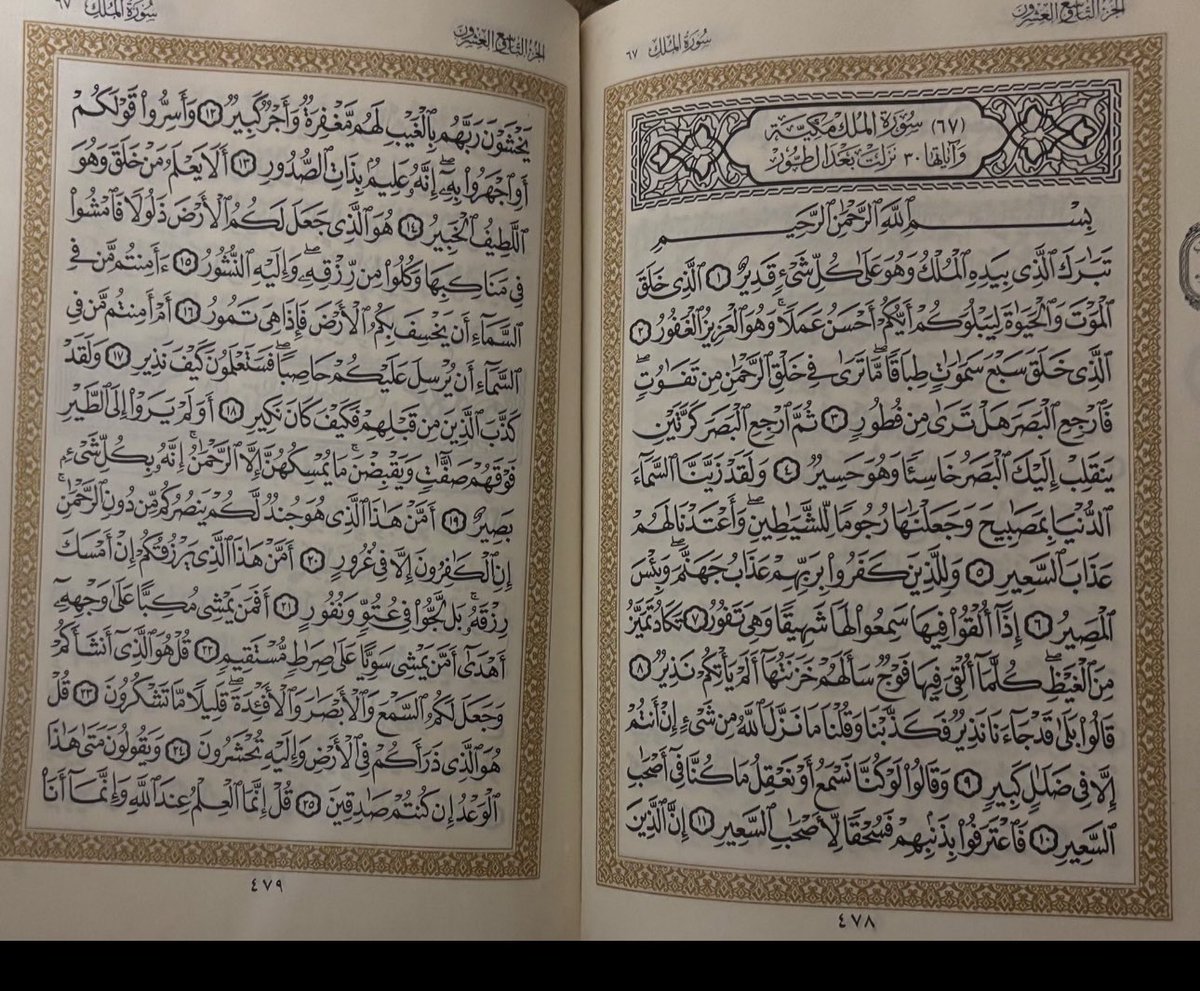 الجزء التاسع والعشرون
سورة الملك ٦٧
(٦٧) سورة الملك مكية
وآياتها ٣٠ نزلت بعد الطور
بِسْمِ ٱللَّهِ ٱلرَّحْمَٰنِ ٱلرَّحِيمِ
تَبَٰرَكَ ٱلَّذِى بِيَدِهِ ٱلْمُلْكُ وَهُوَ عَلَىٰ كُلِّ شَىْءٍ قَدِيرٌ ١ ٱلَّذِى خَلَقَ
ٱلْمَوْتَ وَٱلْحَيَوٰةَ لِيَبْلُوَكُمْ أَيُّكُمْ أَحْسَنُ عَمَلًا ۚ وَهُوَ ٱلْعَزِيزُ ٱلْغَفُورُ ٢
ٱلَّذِى خَلَقَ سَبْعَ سَمَٰوَٰتٍ طِبَاقًا ۖ مَّا تَرَىٰ فِى خَلْقِ ٱلرَّحْمَٰنِ مِن تَفَٰوُتٍ ۖ
فَٱرْجِعِ ٱلْبَصَرَ هَلْ تَرَىٰ مِن فُطُورٍ ٣ ثُمَّ ٱرْجِعِ ٱلْبَصَرَ كَرَّتَيْنِ
يَنقَلِبْ إِلَيْكَ ٱلْبَصَرُ خَاسِئًا وَهُوَ حَسِيرٌ ٤ وَلَقَدْ زَيَّنَّا ٱلسَّمَآءَ
ٱلدُّنْيَا بِمَصَٰبِيحَ وَجَعَلْنَٰهَا رُجُومًا لِّلشَّيَٰطِينِ ۖ وَأَعْتَدْنَا لَهُمْ
عَذَابَ ٱلسَّعِيرِ ٥ وَلِلَّذِينَ كَفَرُوا۟ بِرَبِّهِمْ عَذَابُ جَهَنَّمَ ۖ وَبِئْسَ
ٱلْمَصِيرُ ٦ إِذَآ أُلْقُوا۟ فِيهَا سَمِعُوا۟ لَهَا شَهِيقًا وَهِىَ تَفُورُ ٧ تَكَادُ تَمَيَّزُ
مِنَ ٱلْغَيْظِ ۖ كُلَّمَآ أُلْقِىَ فِيهَا فَوْجٌ سَأَلَهُمْ خَزَنَتُهَآ أَلَمْ يَأْتِكُمْ نَذِيرٌ ٨
قَالُوا۟ بَلَىٰ قَدْ جَآءَنَا نَذِيرٌ فَكَذَّبْنَا وَقُلْنَا مَا نَزَّلَ ٱللَّهُ مِن شَىْءٍ إِنْ أَنتُمْ
إِلَّا فِى ضَلَٰلٍ كَبِيرٍ ٩ وَقَالُوا۟ لَوْ كُنَّا نَسْمَعُ أَوْ نَعْقِلُ مَا كُنَّا فِىٓ أَصْحَٰبِ
ٱلسَّعِيرِ ١٠ فَٱعْتَرَفُوا۟ بِذَنۢبِهِمْ فَسُحْقًا لِّأَصْحَٰبِ ٱلسَّعِيرِ ١١ إِنَّ ٱلَّذِينَ
٤٧٨
الجزء التاسع والعشرون
سورة الملك ٦٧
يَخْشَوْنَ رَبَّهُم بِٱلْغَيْبِ لَهُم مَّغْفِرَةٌ وَأَجْرٌ كَبِيرٌ ١٢ وَأَسِرُّوا۟ قَوْلَكُمْ
أَوِ ٱجْهَرُوا۟ بِهِۦٓ ۖ إِنَّهُۥ عَلِيمٌۢ بِذَاتِ ٱلصُّدُورِ ١٣ أَلَا يَعْلَمُ مَنْ خَلَقَ وَهُوَ
ٱللَّطِيفُ ٱلْخَبِيرُ ١٤ هُوَ ٱلَّذِى جَعَلَ لَكُمُ ٱلْأَرْضَ ذَلُولًا فَٱمْشُوا۟
فِى مَنَاكِبِهَا وَكُلُوا۟ مِن رِّزْقِهِۦ ۖ وَإِلَيْهِ ٱلنُّشُورُ ١٥ ءَأَمِنتُم مَّن فِى
ٱلسَّمَآءِ أَن يَخْسِفَ بِكُمُ ٱلْأَرْضَ فَإِذَا هِىَ تَمُورُ ١٦ أَمْ أَمِنتُم مَّن فِى
ٱلسَّمَآءِ أَن يُرْسِلَ عَلَيْكُمْ حَاصِبًا ۖ فَسَتَعْلَمُونَ كَيْفَ نَذِيرِ ١٧ وَلَقَدْ
كَذَّبَ ٱلَّذِينَ مِن قَبْلِهِمْ فَكَيْفَ كَانَ نَكِيرِ ١٨ أَوَلَمْ يَرَوْا۟ إِلَى ٱلطَّيْرِ
فَوْقَهُمْ صَٰٓفَّٰتٍ وَيَقْبِضْنَ ۚ مَا يُمْسِكُهُنَّ إِلَّا ٱلرَّحْمَٰنُ ۚ إِنَّهُۥ بِكُلِّ شَىْءٍۭ
بَصِيرٌ ١٩ أَمَّنْ هَٰذَا ٱلَّذِى هُوَ جُندٌ لَّكُمْ يَنصُرُكُم مِّن دُونِ ٱلرَّحْمَٰنِ ۚ
إِنِ ٱلْكَٰفِرُونَ إِلَّا فِى غُرُورٍ ٢٠ أَمَّنْ هَٰذَا ٱلَّذِى يَرْزُقُكُمْ إِنْ أَمْسَكَ
رِزْقَهُۥ ۚ بَل لَّجُّوا۟ فِى عُتُوٍّ وَنُفُورٍ ٢١ أَفَمَن يَمْشِى مُكِبًّا عَلَىٰ وَجْهِهِۦٓ
أَهْدَىٰٓ أَمَّن يَمْشِى سَوِيًّا عَلَىٰ صِرَٰطٍ مُّسْتَقِيمٍ ٢٢ قُلْ هُوَ ٱلَّذِىٓ أَنشَأَكُمْ
وَجَعَلَ لَكُمُ ٱلسَّمْعَ وَٱلْأَبْصَٰرَ وَٱلْأَفْـِٔدَةَ ۖ قَلِيلًا مَّا تَشْكُرُونَ ٢٣ قُلْ
هُوَ ٱلَّذِى ذَرَأَكُمْ فِى ٱلْأَرْضِ وَإِلَيْهِ تُحْشَرُونَ ٢٤ وَيَقُولُونَ مَتَىٰ هَٰذَا
ٱلْوَعْدُ إِن كُنتُمْ صَٰدِقِينَ ٢٥ قُلْ إِنَّمَا ٱلْعِلْمُ عِندَ ٱللَّهِ وَإِنَّمَآ أَنَا۠
٤٧٩